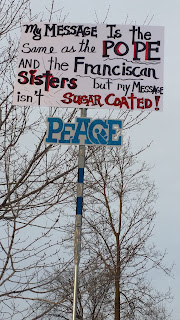 My Message Is the
Same as the POPE
AND the Franciscan
Sisters but my Message
isn't SUGAR COATED!
PEACE